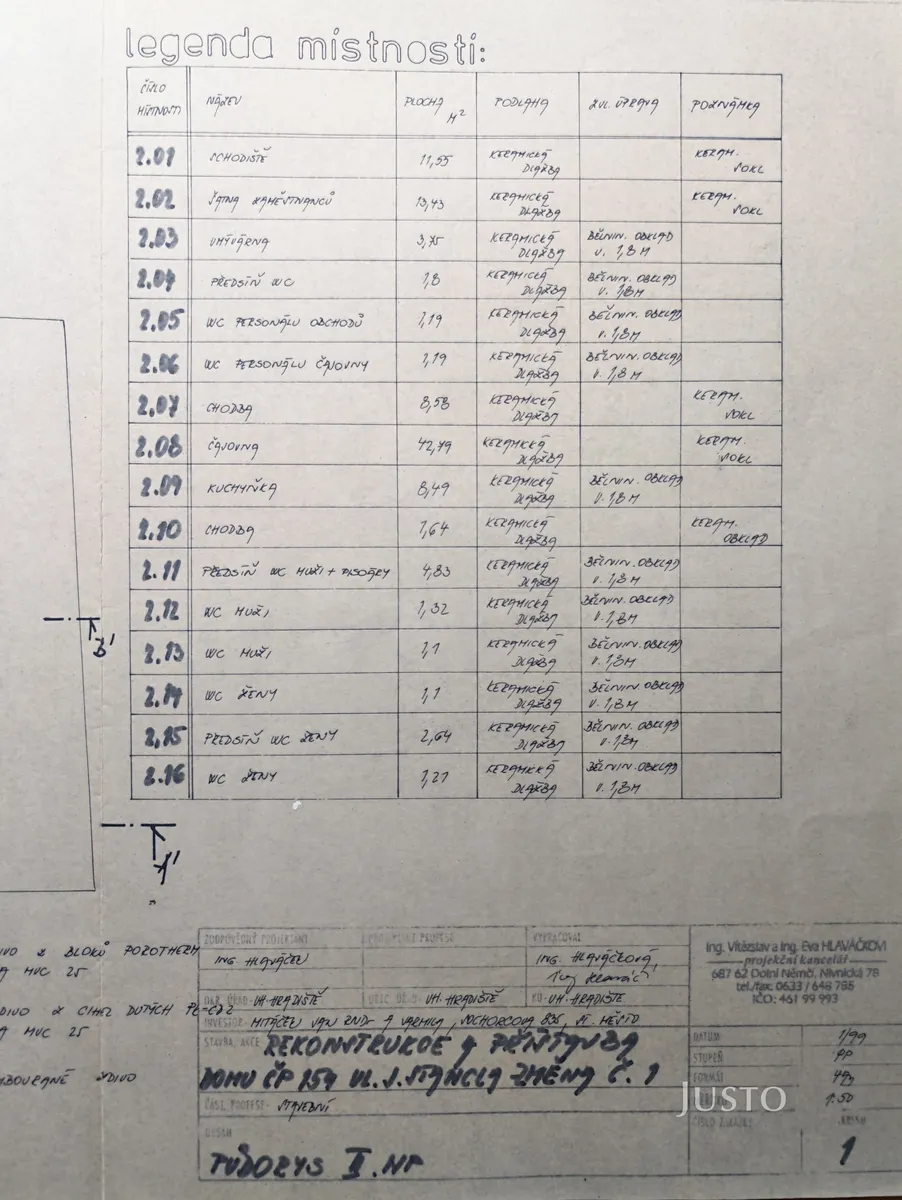 legenda místností:
ČÍSLO MÍSTNOSTI NÁZEV PLOCHA M² PODLAHA ZVL. ÚPRAVA POZNÁMKA
2.01 SCHODIŠTĚ 11,55 KERAMICKÁ DLAŽBA KERAM. SOKL
2.02 ŠATNA ZAMĚSTNANCŮ 13,43 KERAMICKÁ DLAŽBA KERAM. SOKL
2.03 UMÝVÁRNA 3,75 KERAMICKÁ DLAŽBA BĚLNIN. OBKLAD V. 1,8 M
2.04 PŘEDSÍŇ WC 1,8 KERAMICKÁ DLAŽBA BĚLNIN. OBKLAD V. 1,8 M
2.05 WC PERSONÁLU OBCHODŮ 1,19 KERAMICKÁ DLAŽBA BĚLNIN. OBKLAD V. 1,8 M
2.06 WC PERSONÁLU ČAJOVNY 1,19 KERAMICKÁ DLAŽBA BĚLNIN. OBKLAD V. 1,8 M
2.07 CHODBA 8,58 KERAMICKÁ DLAŽBA KERAM. SOKL
2.08 ČAJOVNA 42,79 KERAMICKÁ DLAŽBA KERAM. SOKL
2.09 KUCHYŇKA 8,49 KERAMICKÁ DLAŽBA BĚLNIN. OBKLAD V. 1,8 M
2.10 CHODBA 1,64 KERAMICKÁ DLAŽBA KERAM. OBKLAD
2.11 PŘEDSÍŇ WC MUŽI + PISOÁRY 4,83 KERAMICKÁ DLAŽBA BĚLNIN. OBKLAD V. 1,8 M
2.12 WC MUŽI 1,32 KERAMICKÁ DLAŽBA BĚLNIN. OBKLAD V. 1,8 M
2.13 WC MUŽI 1,1 KERAMICKÁ DLAŽBA BĚLNIN. OBKLAD V. 1,8 M
2.14 WC ŽENY 1,1 KERAMICKÁ DLAŽBA BĚLNIN. OBKLAD V. 1,8 M
2.15 PŘEDSÍŇ WC ŽENY 2,64 KERAMICKÁ DLAŽBA BĚLNIN. OBKLAD V. 1,8 M
2.16 WC ŽENY 1,21 KERAMICKÁ DLAŽBA BĚLNIN. OBKLAD V. 1,8 M
B'
A'
Z BLOKŮ POROTHERM
MVC 25
Z CIHEL DUTÝCH
MVC 25
ZDIVO
ZODPOVĚDNÝ PROJEKTANT VYPRACOVAL
ING. HLAVÁČEK ING. HLAVÁČKOVÁ,
Ing. Hlaváč
UH. HRADIŠTĚ UH. HRADIŠTĚ UH. HRADIŠTĚ
INVESTOR
STAVBA, AKCE REKONSTRUKCE A PŘÍSTAVBA
DOMU ČP 154 UL. J. STANCLA ZMĚNA Č. 1
ČÁST, PROFESE STAVEBNÍ
OBSAH
PŮDORYS II. NP
Ing. Vítězslav a Ing. Eva HLAVÁČKOVI
projekční kancelář
687 62 Dolní Němčí, Nivnická 78
tel./fax: 0633 / 648 785
IČO: 461 99 993
DATUM 1/99
STUPEŇ PP
FORMÁT 4A4
1:50
ČÍSLO ZAKÁZKY
1
JUSTO